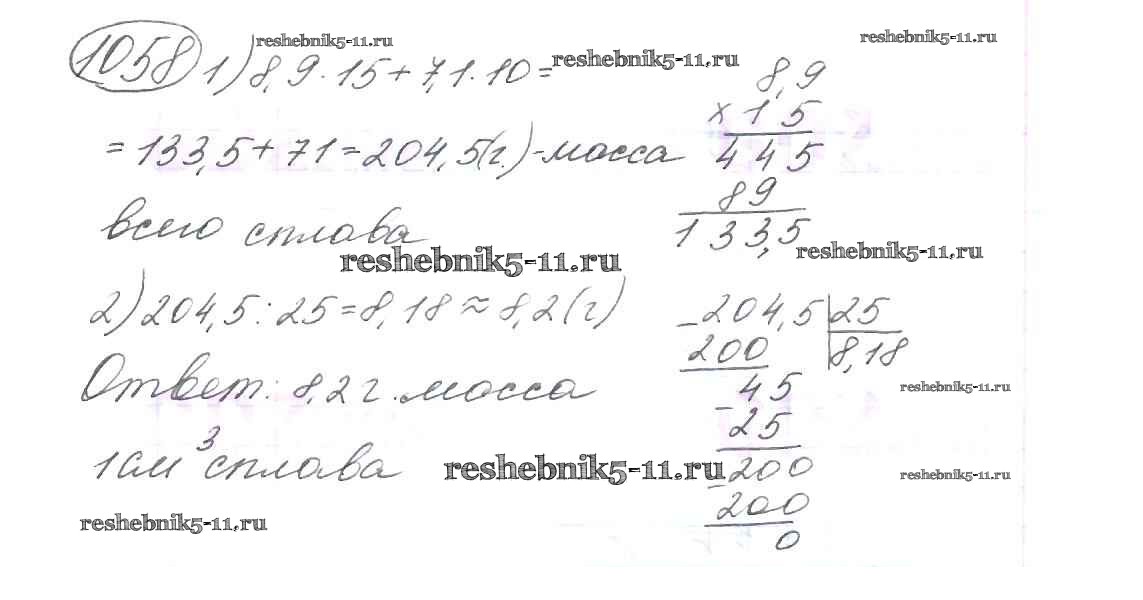 1058 1) 8,9 · 15 + 7,1 · 10 =
= 133,5 + 71 = 204,5 (г.) - масса
всего сплава
2) 204,5 : 25 = 8,18 ≈ 8,2 (г)
Ответ: 8,2 г. масса
1 см³ сплава
8,9
× 15
445
89
133,5
- 204,5 | 25
200 8,18
- 45
25
- 200
200
0
reshebnik5-11.ru
reshebnik5-11.ru
reshebnik5-11.ru
reshebnik5-11.ru
reshebnik5-11.ru
reshebnik5-11.ru
reshebnik5-11.ru
reshebnik5-11.ru
reshebnik5-11.ru